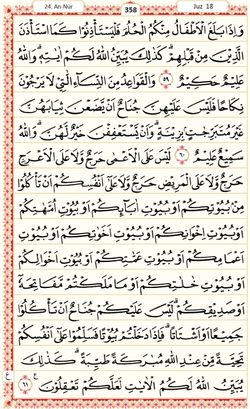 24. An Nûr 358 Juz 18
وَاِذَا بَلَغَ الْاَطْفَالُ مِنْكُمُ الْحُلُمَ فَلْيَسْتَأْذِنُوْا كَمَا اسْتَأْذَنَ
الَّذِيْنَ مِنْ قَبْلِهِمْ كَذٰلِكَ يُبَيِّنُ اللّٰهُ لَكُمْ اٰيٰتِهٖ وَاللّٰهُ
عَلِيْمٌ حَكِيْمٌ ٥٩ وَالْقَوَاعِدُ مِنَ النِّسَاۤءِ الّٰتِيْ لَا يَرْجُوْنَ
نِكَاحًا فَلَيْسَ عَلَيْهِنَّ جُنَاحٌ اَنْ يَّضَعْنَ ثِيَابَهُنَّ
غَيْرَ مُتَبَرِّجٰتٍ بِزِيْنَةٍ وَاَنْ يَّسْتَعْفِفْنَ خَيْرٌ لَّهُنَّ وَاللّٰهُ
سَمِيْعٌ عَلِيْمٌ ٦٠ لَيْسَ عَلَى الْاَعْمٰى حَرَجٌ وَّلَا عَلَى الْاَعْرَجِ
حَرَجٌ وَّلَا عَلَى الْمَرِيْضِ حَرَجٌ وَّلَا عَلٰٓى اَنْفُسِكُمْ اَنْ تَأْكُلُوْا
مِنْۢ بُيُوْتِكُمْ اَوْ بُيُوْتِ اٰبَاۤىِٕكُمْ اَوْ بُيُوْتِ اُمَّهٰتِكُمْ
اَوْ بُيُوْتِ اِخْوَانِكُمْ اَوْ بُيُوْتِ اَخَوٰتِكُمْ اَوْ بُيُوْتِ
اَعْمَامِكُمْ اَوْ بُيُوْتِ عَمّٰتِكُمْ اَوْ بُيُوْتِ اَخْوَالِكُمْ
اَوْ بُيُوْتِ خٰلٰتِكُمْ اَوْ مَا مَلَكْتُمْ مَّفَاتِحَهٗٓ
اَوْ صَدِيْقِكُمْ لَيْسَ عَلَيْكُمْ جُنَاحٌ اَنْ تَأْكُلُوْا
جَمِيْعًا اَوْ اَشْتَاتًا فَاِذَا دَخَلْتُمْ بُيُوْتًا فَسَلِّمُوْا عَلٰٓى اَنْفُسِكُمْ
تَحِيَّةً مِّنْ عِنْدِ اللّٰهِ مُبٰرَكَةً طَيِّبَةً كَذٰلِكَ
يُبَيِّنُ اللّٰهُ لَكُمُ الْاٰيٰتِ لَعَلَّكُمْ تَعْقِلُوْنَ ٦١ ع
ع